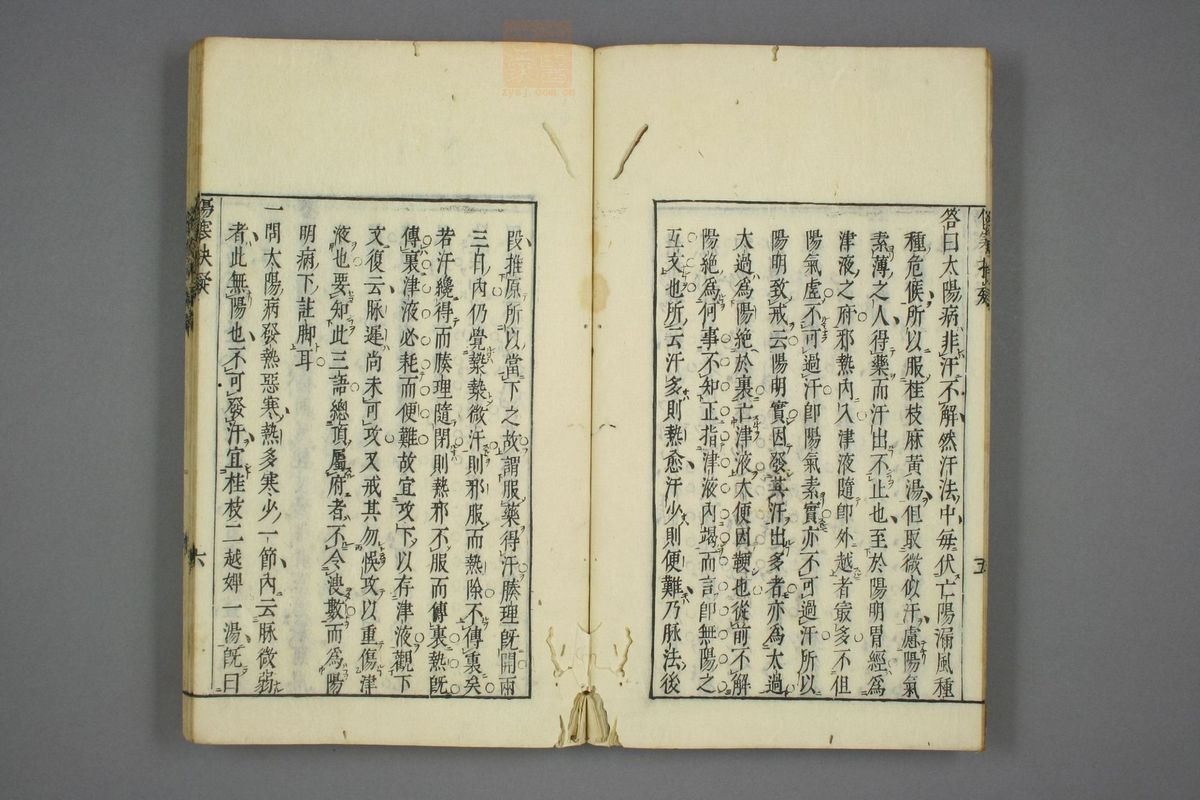 答曰太陽病非汗不解然汗法中每伏亡陽漏風種
種危候所以服桂枝麻黃湯但取微似汗慮陽氣
素薄之人得藥而汗出不止也至於陽明胃經為
津液之府邪熱內入津液隨即外越者最多不但
陽氣虛不可過汗卽陽氣素實亦不可過汗所以
陽明致戒云陽明實因發其汗出多者亦為太過
太過為陽絕於裏亡津液大便因鞕也從前不解
陽絕為何事不知正指津液內竭而言卽無陽之
互文也所云汗多則熱愈汗少則便難乃脉法後
五
段推原所以當下之故謂服藥得汗腠理旣開兩
三日內仍覺漐漐微汗則邪服而熱除不傳裏矣
若汗纔得而腠理隨閉則熱邪不服而傳裏熱旣
傳裏津液必耗而便難故宜攻下以存津液觀下
文復云脉遲尚未可攻又戒其勿悞攻以重傷津
液也要知此三語總頂屬府者不令溲數而為陽
明病下註脚耳
一問太陽病發熱惡寒熱多寒少一節內云脉微弱
者此無陽也不可發汗宜桂枝二越婢一湯旣曰
傷寒抉疑
六
zysj.com.cn